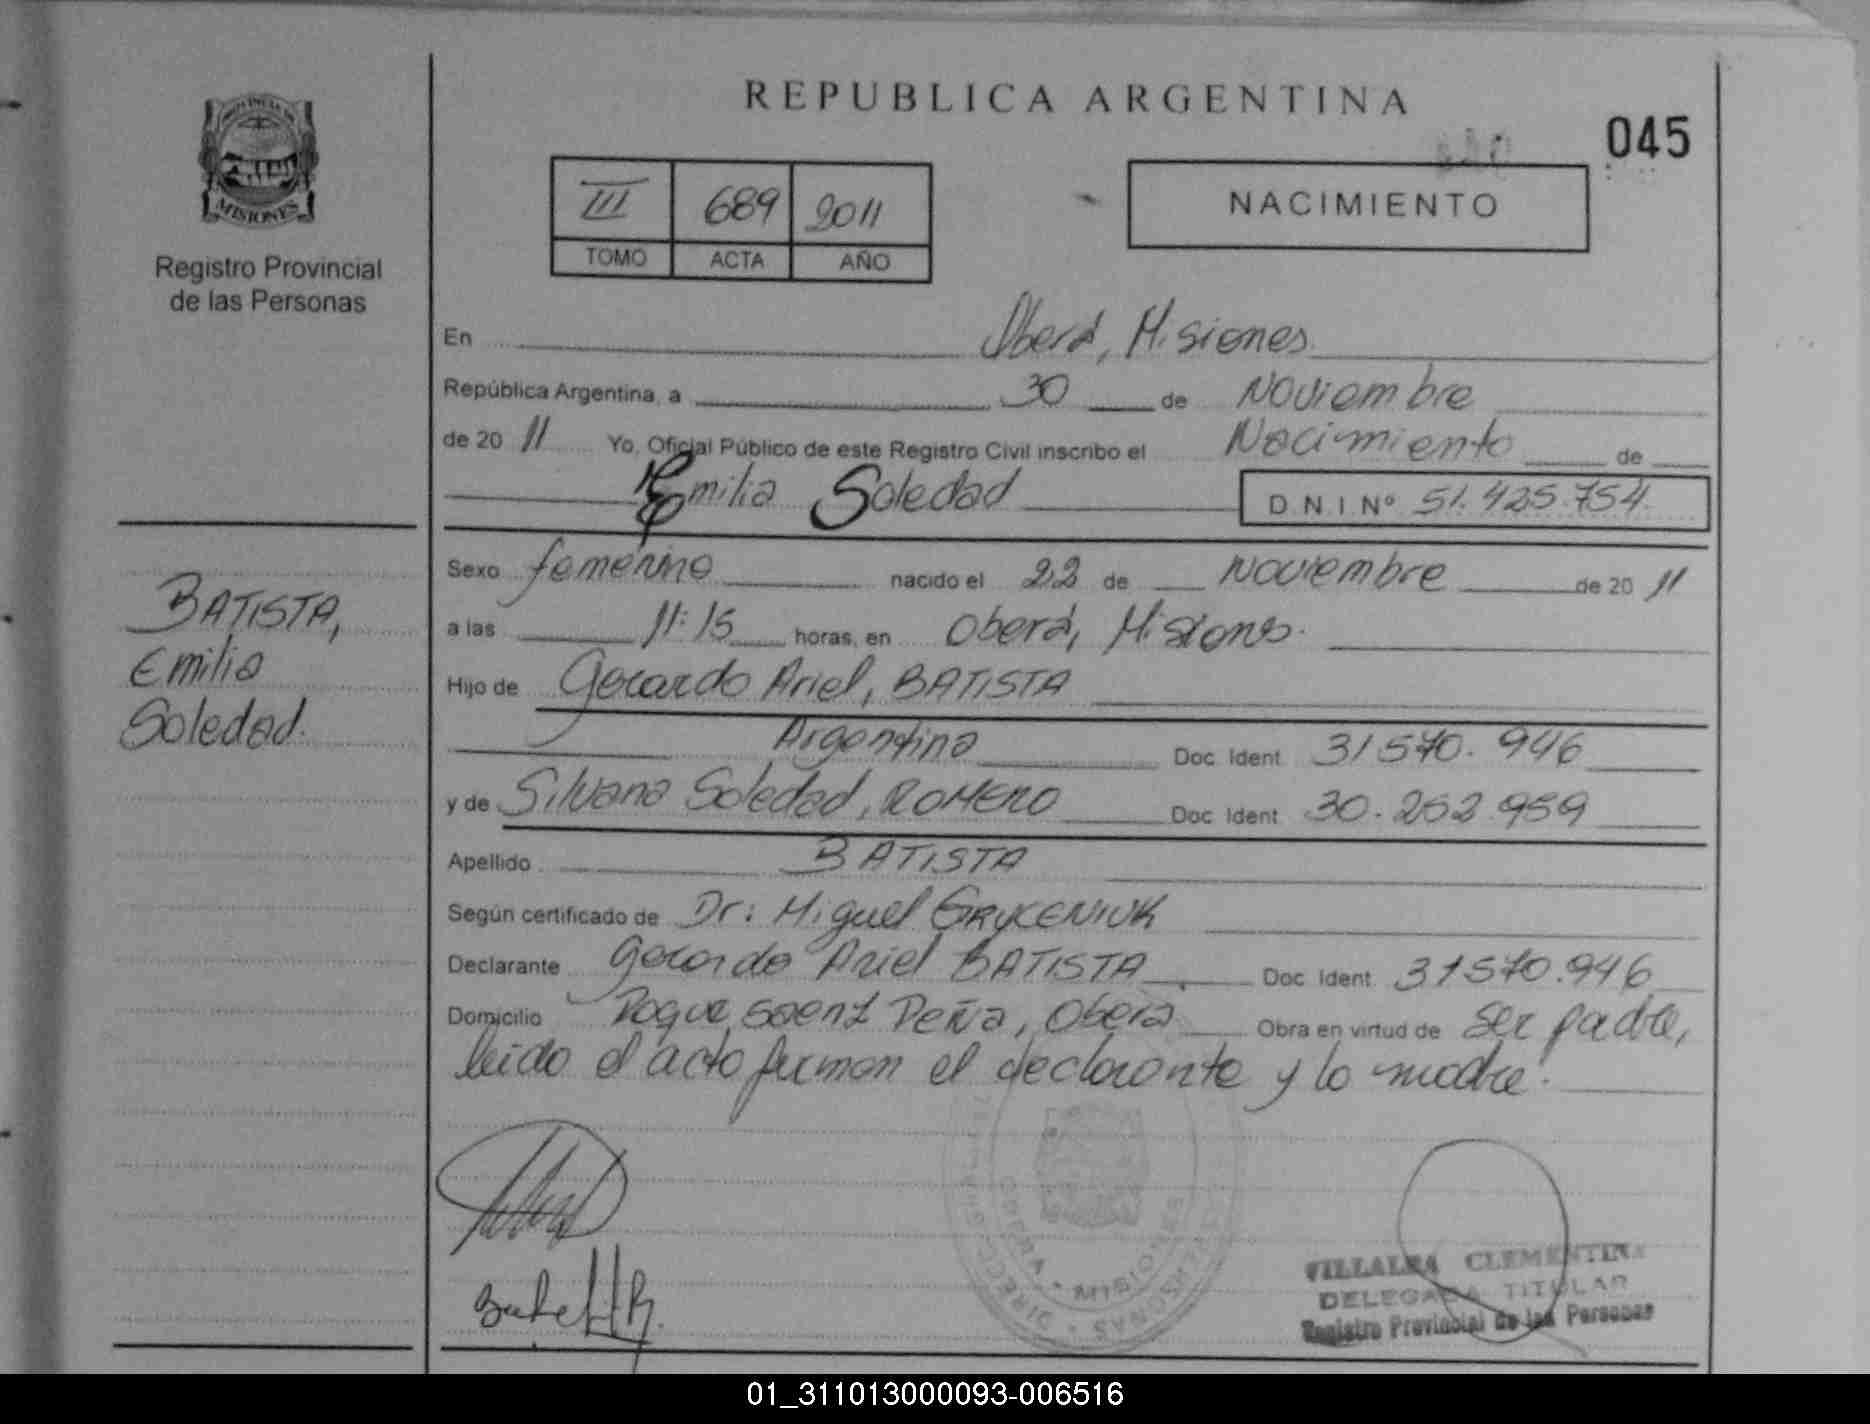 REPUBLICA ARGENTINA
045
PROVINCIA DE
MISIONES
Registro Provincial
de las Personas
III 689 2011
TOMO ACTA AÑO
NACIMIENTO
En Oberá, Misiones.
República Argentina, a 30 de Noviembre
de 20 11 Yo, Oficial Público de este Registro Civil inscribo el Nacimiento de
Emilia Soledad D.N.I.Nº 51.425.754
Sexo femenino nacido el 22 de Noviembre de 20 11
a las 11:15 horas, en Oberá, Misiones.
Hijo de Gerardo Ariel, BATISTA
Argentina Doc. Ident. 31570.946
y de Silvana Soledad, ROMERO Doc. Ident. 30.252.959
Apellido BATISTA
Según certificado de Dr: Miguel GRYCENIUK
Declarante Gerardo Ariel BATISTA Doc. Ident. 31570.946
Domicilio Roque Saenz Peña, Oberá Obra en virtud de ser padre,
leido el acto firman el declarante y la madre.
BATISTA,
Emilia
Soledad.
OBERA - MISIONES
VILLALBA CLEMENTINA
DELEGADA TITULAR
Registro Provincial de las Personas
01_311013000093-006516